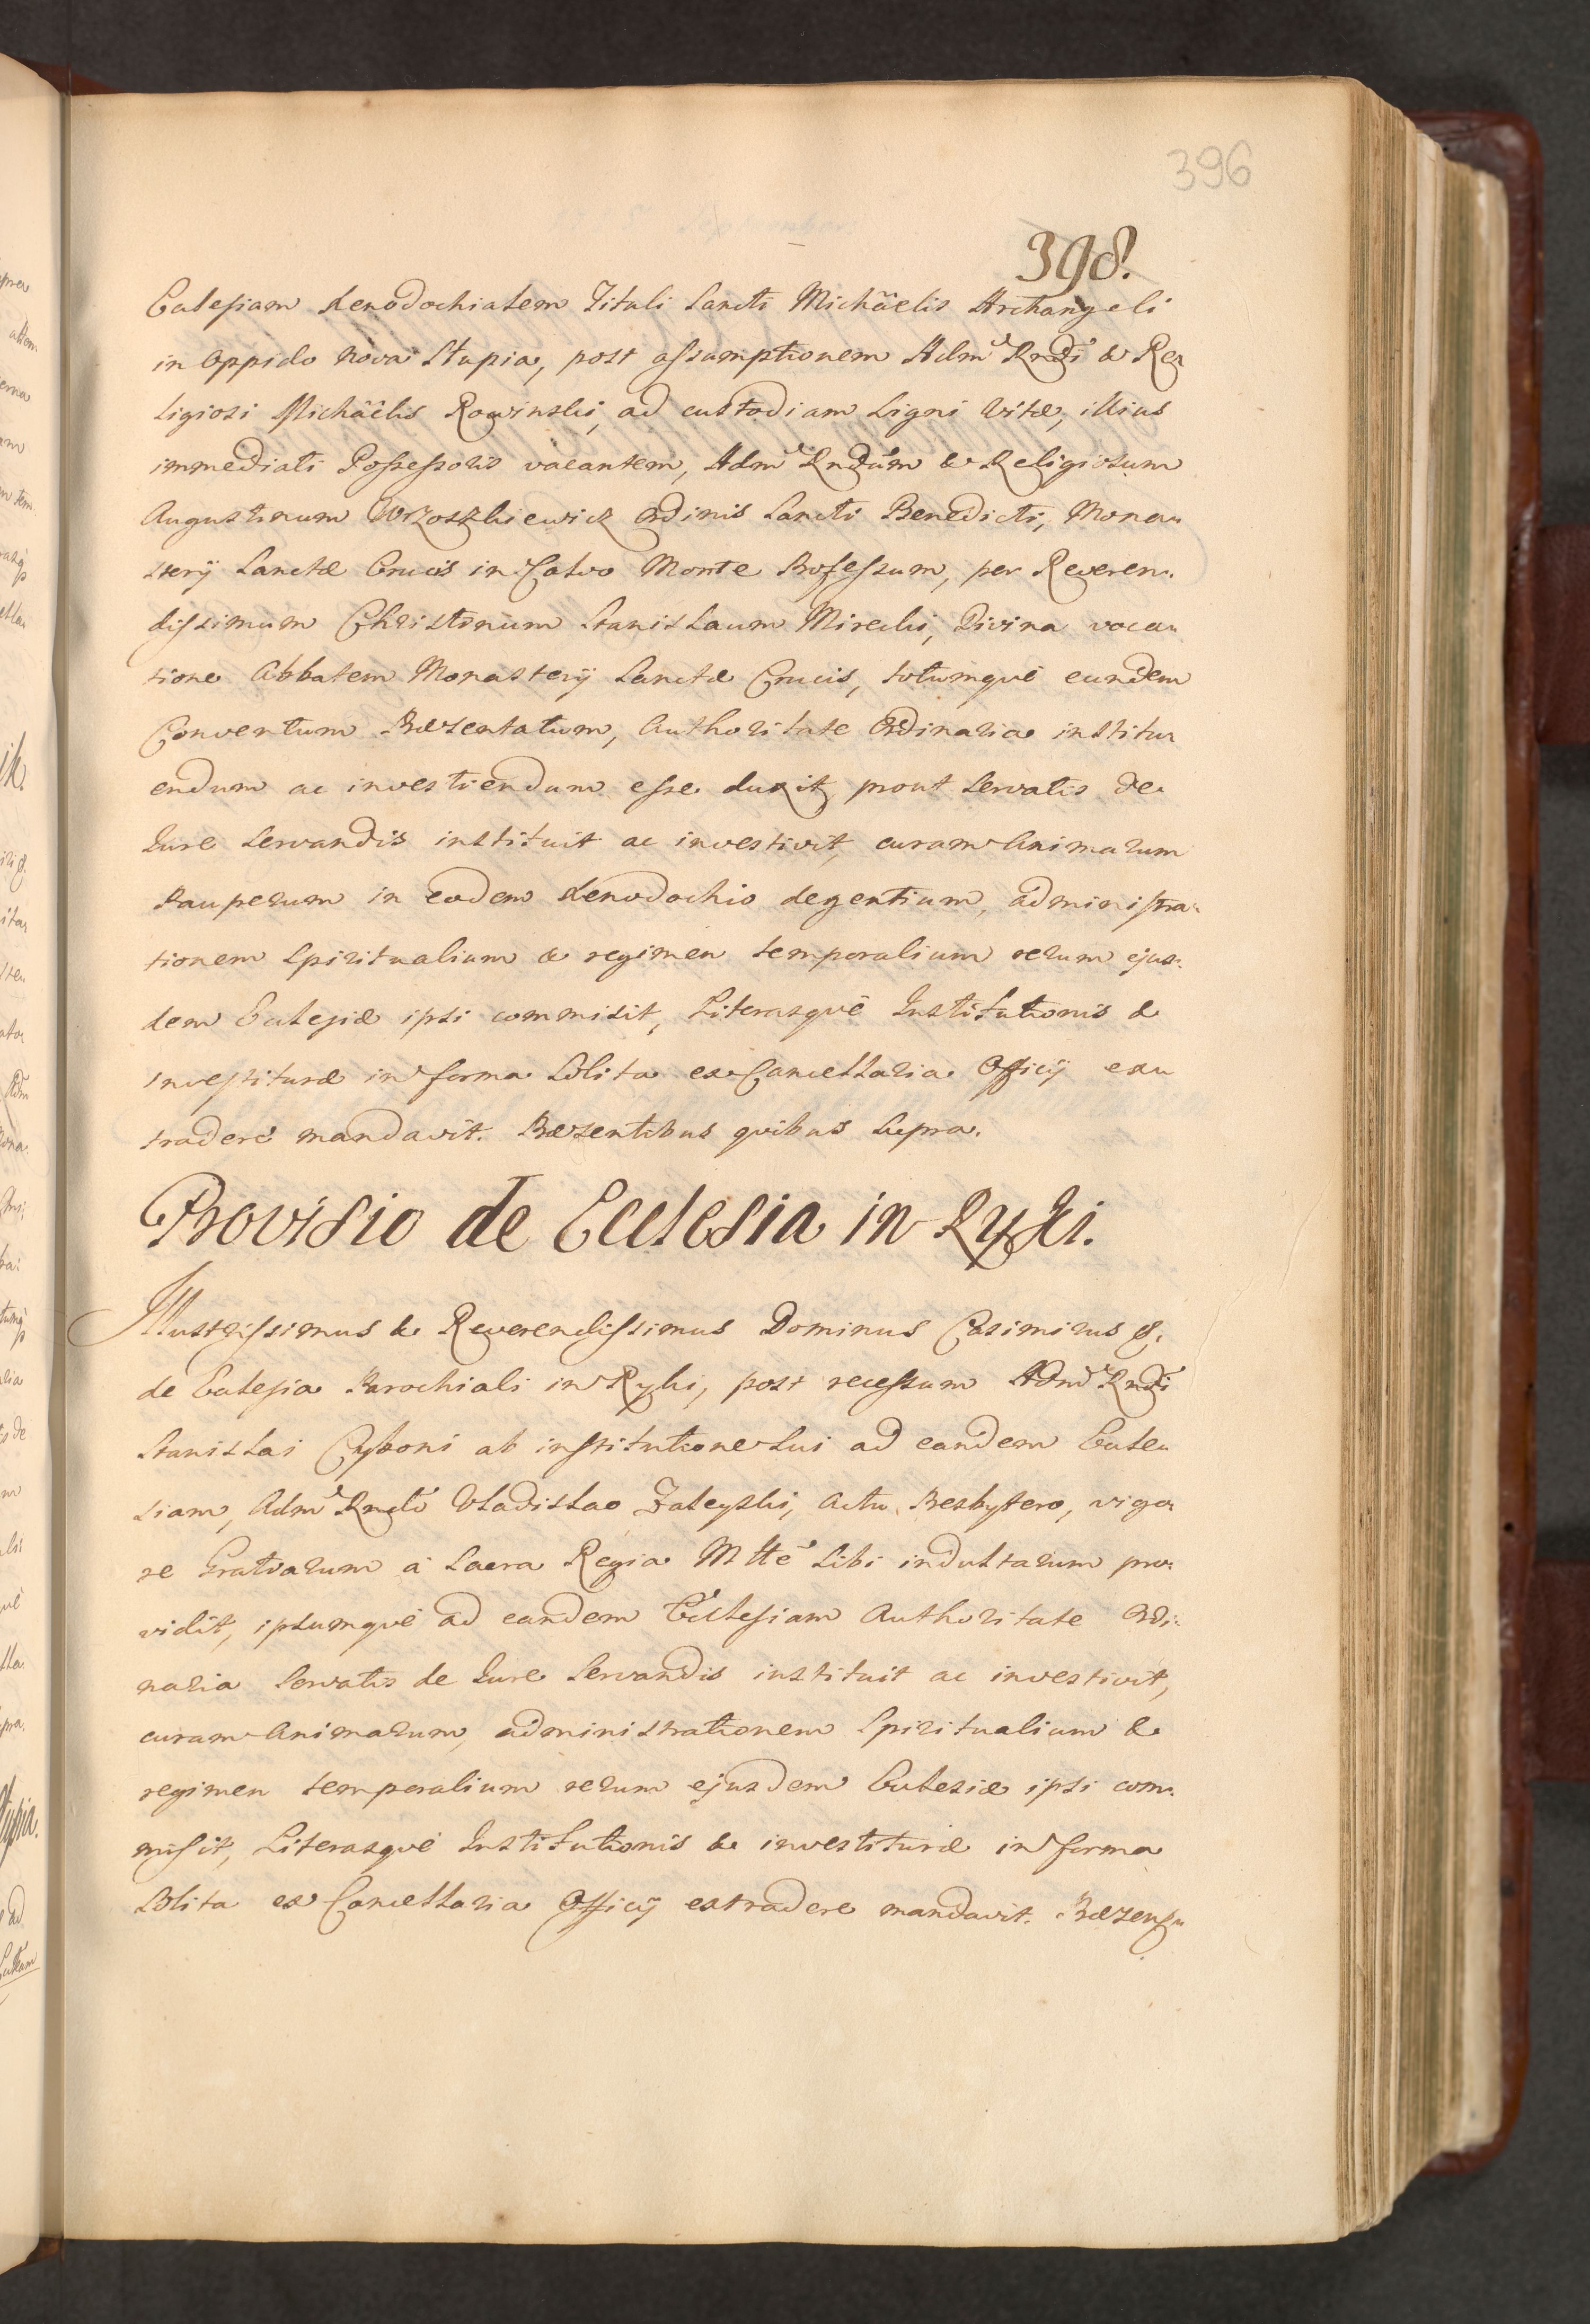 396
398.
Ecclesiam Xenodochialem Tituli Sancti Michäelis Archangeli
in Oppido Nova Stupia, post assumptionem Adm Rndi & Re„
ligiosi Michäelis Rowinski, ad custodiam Ligni Vitæ, illius
immediati Possessoris vacantem, Adm Rndum & Religiosum
Augustinum Wrzoszkiewicz Ordinis Sancti Benedicti, Mona„
sterÿ Sanctæ Crucis in Calvo Monte Professum, per Reveren„
dissimum Christinum Stanislaum Mirecki, Divina voca„
tione Abbatem Monasterÿ Sanctæ Crucis, totumqve eundem
Conventum Præsentatum, Authoritate Ordinaria institu„
endum ac investiendum esse duxit, prout servatis de
Iure servandis instituit ac investivit, curam Animarum
Pauperum in eodem Xenodochio degentium, administra„
tionem Spiritualium & regimen temporalium rerum ejus„
dem Ecclesiæ ipsi commisit, Literasqve Institutionis &
investituræ in forma solita ex Cancellaria Officÿ ex„
tradere mandavit. Præsentibus qvibus supra.
Provisio de Ecclesia in Ryki.
Illustrissimus & Reverendissimus Dominus Casimirus &.
de Ecclesia Parochiali in Ryki, post recessum Adm Rndi
Stanislai Cyboni ab institutione sui ad eandem Eccle„
siam, Adm Rndo Vladislao Zaleyski, Actu Presbytero, vigo„
re Gratiarum à Sacra Regia Mtte sibi indultarum pro„
vidit, ipsumqve ad eandem Ecclesiam Authoritate Ordi„
naria servatis de Iure servandis instituit ac investivit,
curam Animarum, administrationem Spiritualium &
regimen temporalium rerum ejusdem Ecclesiæ ipsi com„
misit, Literasqve Institutionis & investituræ in forma
solita ex Cancellaria Officÿ extradere mandavit. Præsen„